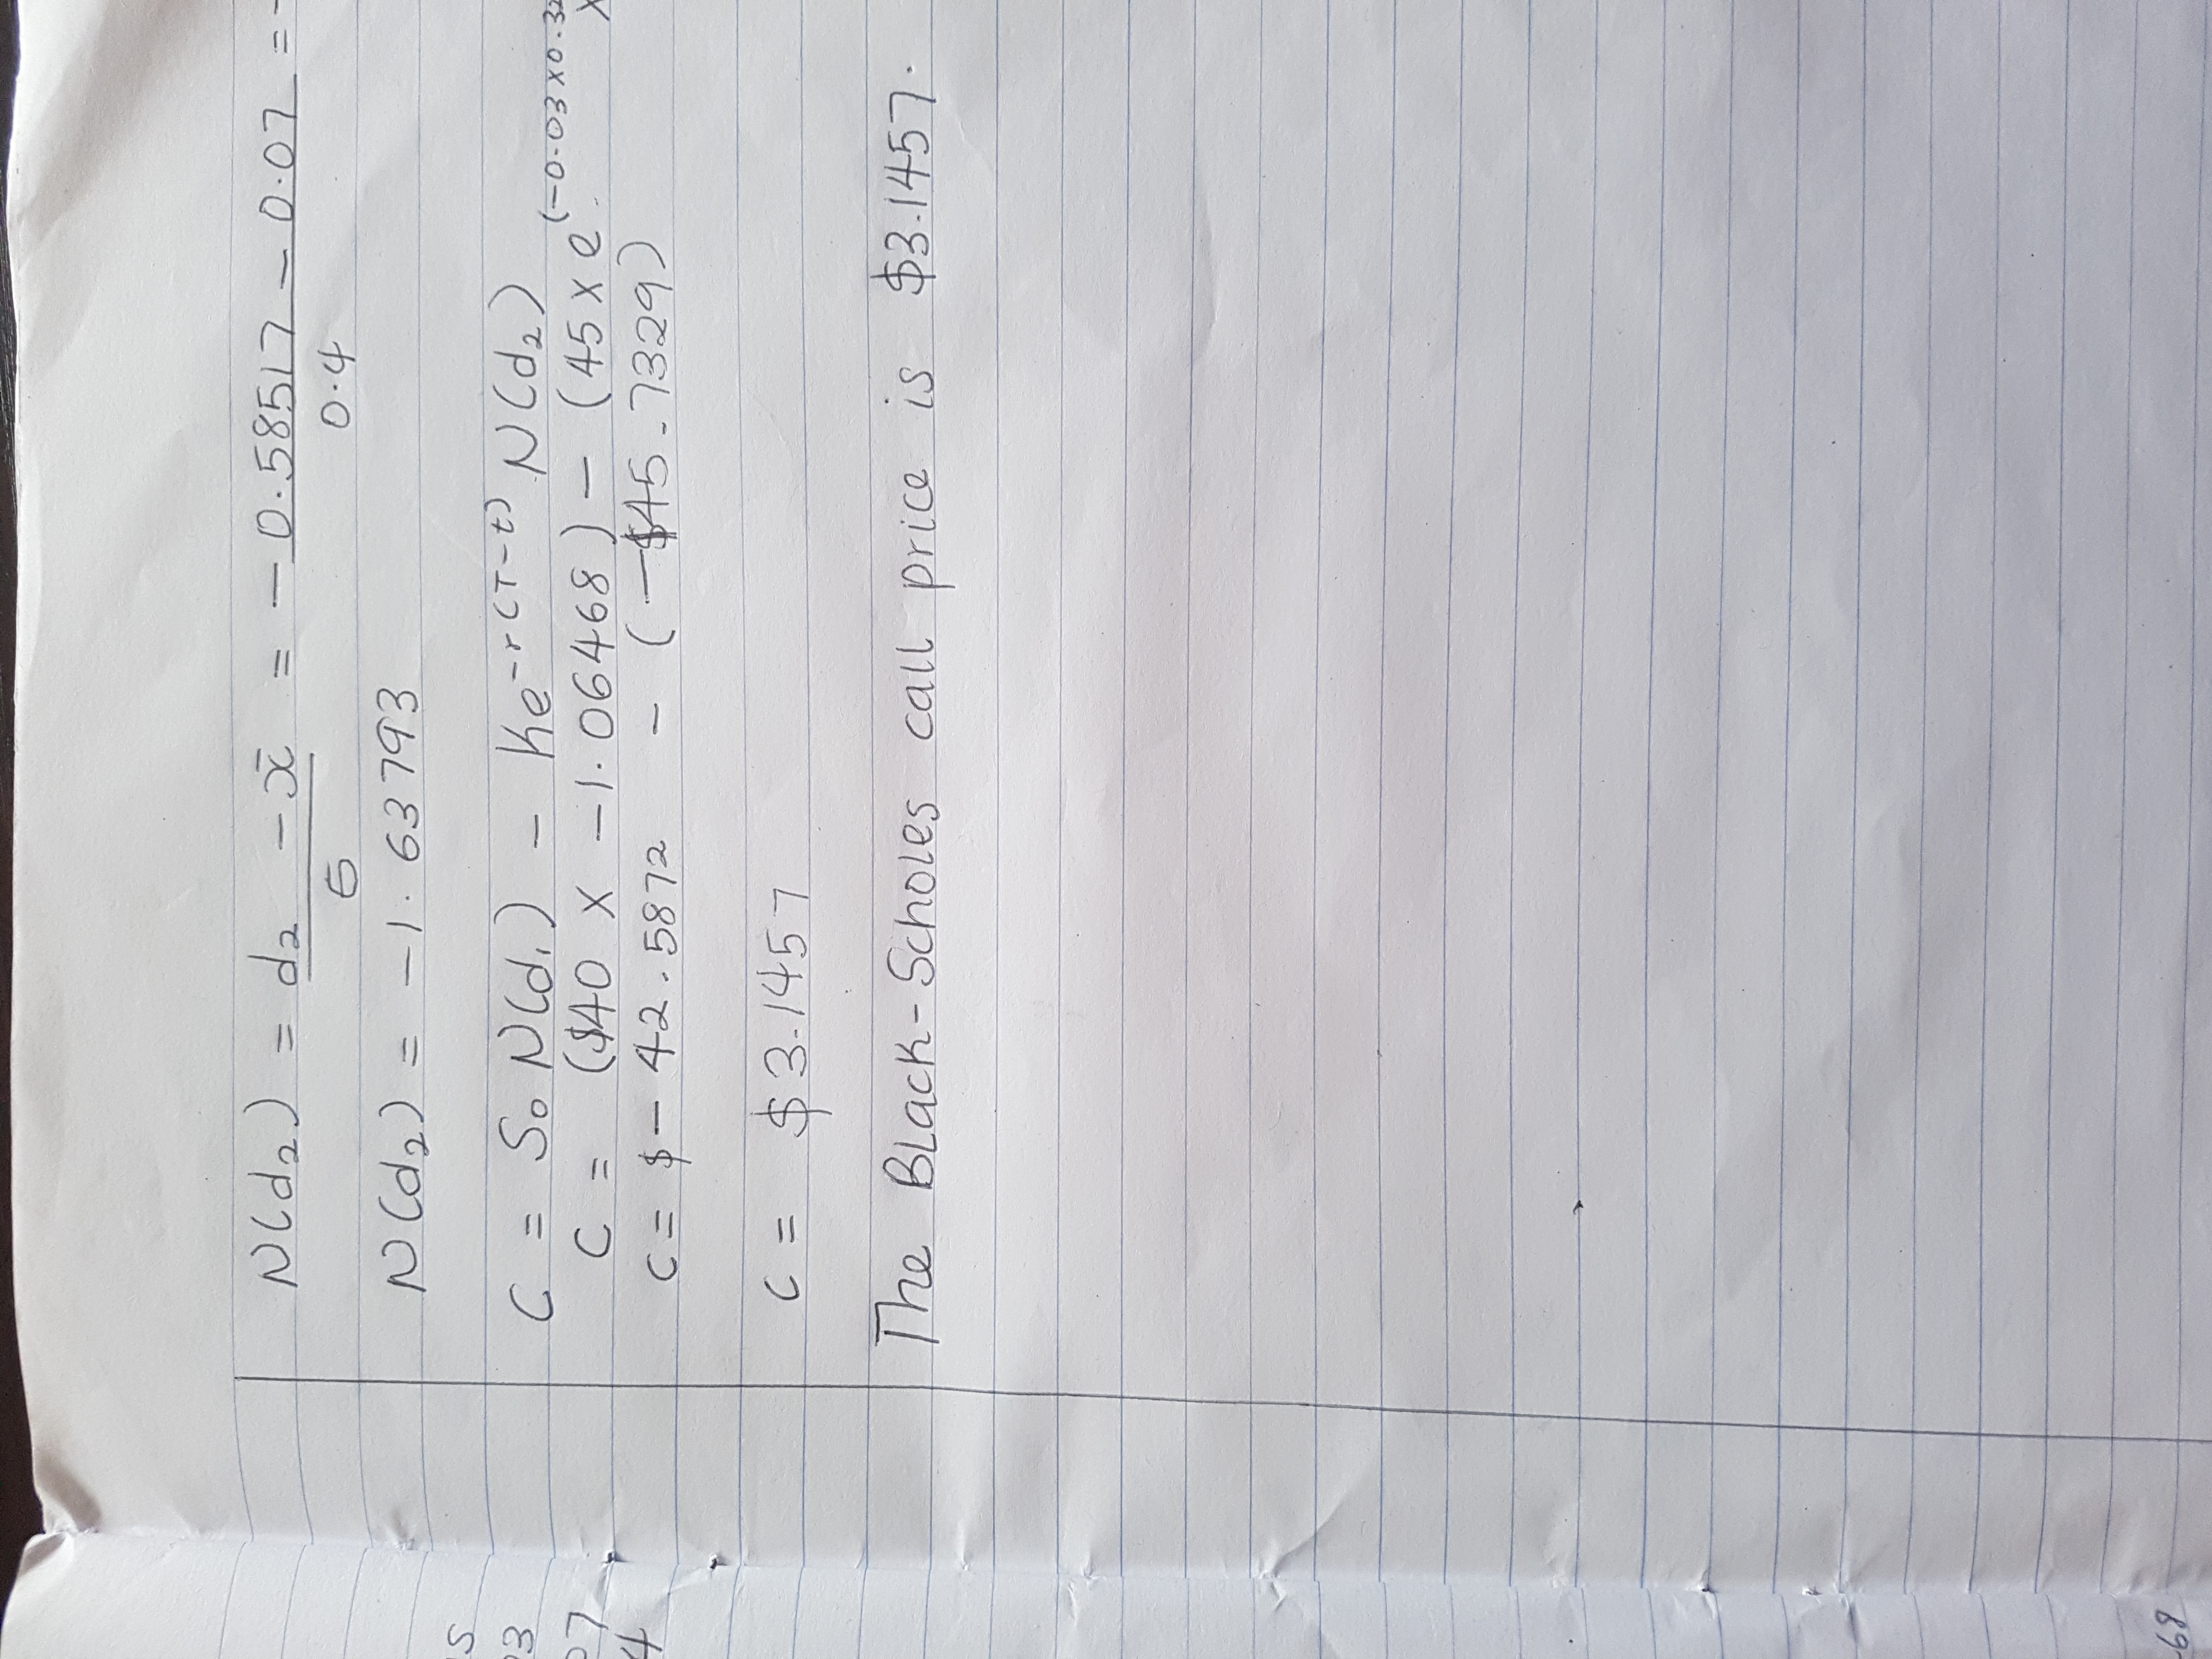 N(d₂) = d₂ - x̄ = - 0.58517 - 0.07 = -
σ 0.4
N(d₂) = -1.63793
C = S₀ N(d₁) - Ke^-r(T-t) N(d₂)
C = ($40 x -1.06468) - (45 x e^(-0.03 x 0.32 x
C = $- 42.5872 - (-$45.7329)
C = $3.1457
The Black-Scholes call price is $3.1457.
s
3
07
4
68